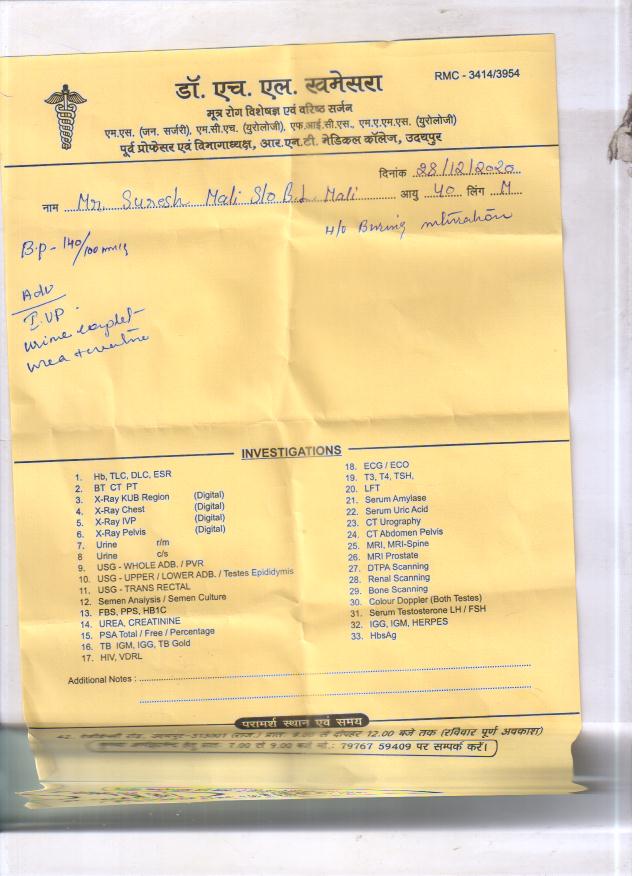 डॉ. एच. एल. खमेसरा
RMC - 3414/3954
मूत्र रोग विशेषज्ञ एवं वरिष्ठ सर्जन
एम.एस. (जन. सर्जरी), एम.सी.एच. (युरोलोजी), एफ.आई.सी.एस., एम.ए.एम.एस. (युरोलोजी)
पूर्व प्रोफेसर एवं विभागाध्यक्ष, आर.एन.टी. मेडिकल कॉलेज, उदयपुर
दिनांक 28/12/2020
नाम Mr. Suresh Mali S/o B.L. Mali आयु 40 लिंग M
H/o Buring mituration
B.p - 140/100 mmHg
Adv
I.VP
urine complet
urea +
INVESTIGATIONS
1. Hb, TLC, DLC, ESR
2. BT CT PT
3. X-Ray KUB Region (Digital)
4. X-Ray Chest (Digital)
5. X-Ray IVP (Digital)
6. X-Ray Pelvis (Digital)
7. Urine r/m
8 Urine c/s
9. USG - WHOLE ADB. / PVR
10. USG - UPPER / LOWER ADB. / Testes Epididymis
11. USG - TRANS RECTAL
12. Semen Analysis / Semen Culture
13. FBS, PPS, HB1C
14. UREA, CREATININE
15. PSA Total / Free / Percentage
16. TB IGM, IGG, TB Gold
17. HIV, VDRL
18. ECG / ECO
19. T3, T4, TSH,
20. LFT
21. Serum Amylase
22. Serum Uric Acid
23. CT Urography
24. CT Abdomen Pelvis
25. MRI, MRI-Spine
26. MRI Prostate
27. DTPA Scanning
28. Renal Scanning
29. Bone Scanning
30. Colour Doppler (Both Testes)
31. Serum Testosterone LH / FSH
32. IGG, IGM, HERPES
33. HbsAg
Additional Notes :
परामर्श स्थान एवं समय
उदयपुर-313001 (राज.) प्रातः 9.00 से दोपहर 12.00 बजे तक (रविवार पूर्ण अवकाश)
प्रातः 7.00 से 9.00 बजे मो.: 79767 59409 पर सम्पर्क करें।